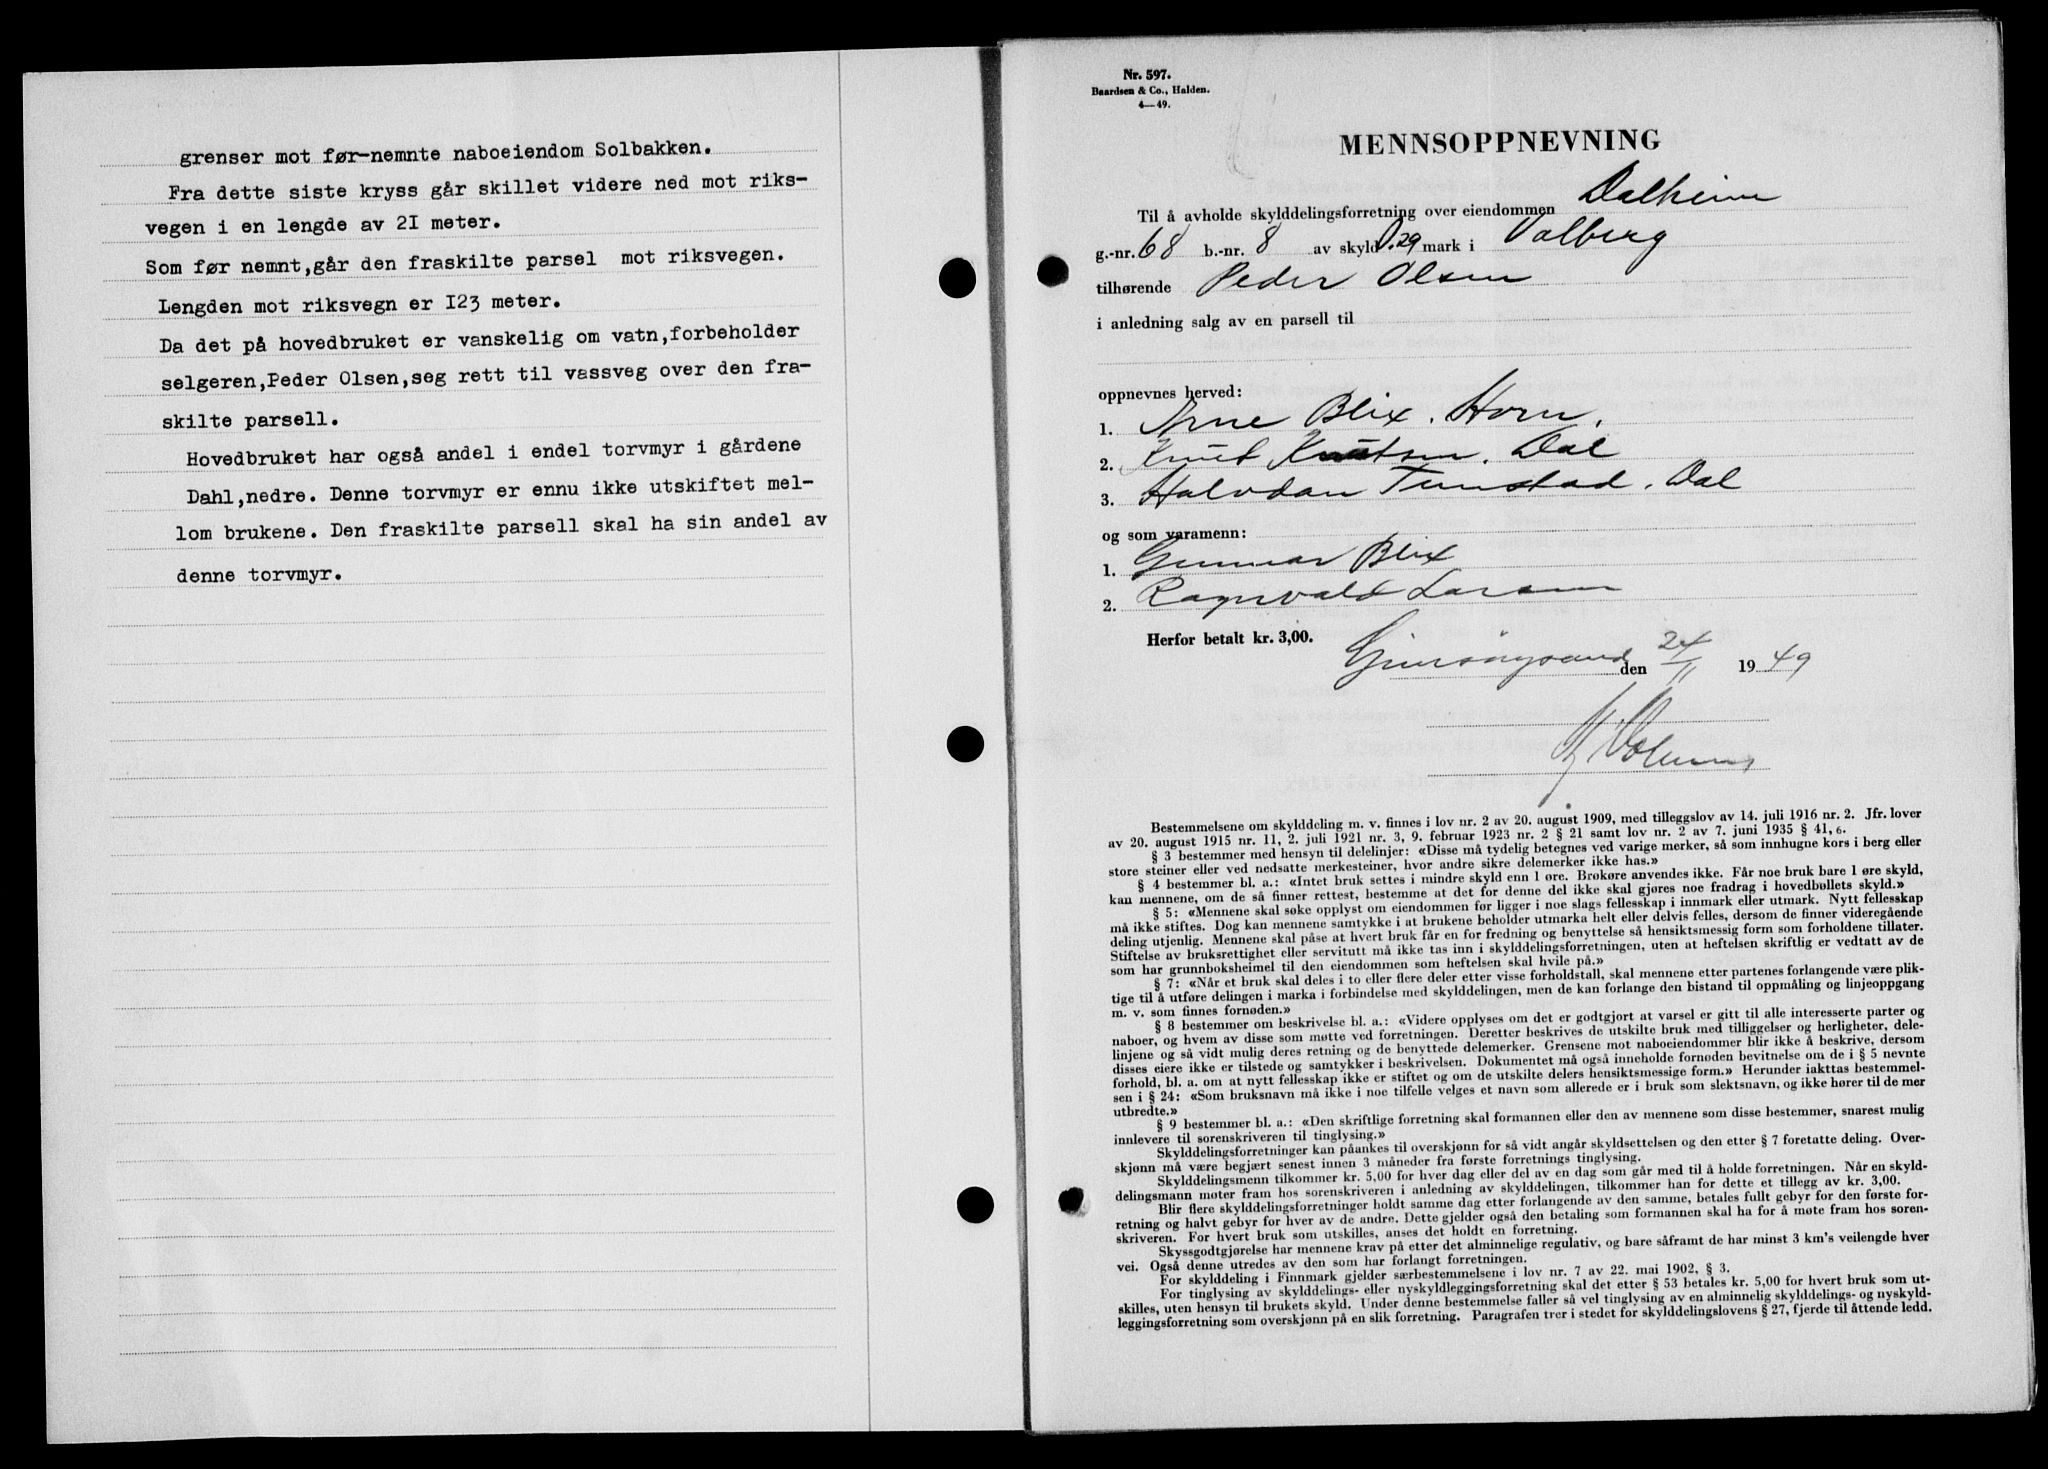 grenser mot før-nemnte naboeiendom Solbakken.
Fra dette siste kryss går skillet videre ned mot riks-
vegen i en lengde av 21 meter.
Som før nemnt,går den fraskilte parsel mot riksvegen.
Lengden mot riksvegn er 123 meter.
Da det på hovedbruket er vanskelig om vatn,forbeholder
selgeren,Peder Olsen,seg rett til vassveg over den fra-
skilte parsell.
Hovedbruket har også andel i endel torvmyr i gårdene
Dahl,nedre. Denne torvmyr er ennu ikke utskiftet mel-
lom brukene. Den fraskilte parsell skal ha sin andel av
denne torvmyr.
Nr. 597.
Baardsen & Co., Halden.
4—49.
MENNSOPPNEVNING
Til å avholde skylddelingsforretning over eiendommen Dalheim
g.-nr. 68 b.-nr. 8 av skyld 0.29 mark i Valberg
tilhørende Peder Olsen
i anledning salg av en parsell til
oppnevnes herved:
1. Arne Blix. Horn.
2. Knut Knutsen. Dal
3. Halvdan Tunstad. Dal
og som varamenn:
1. Gunnar Blix
2. Ragnvald Larsen
Herfor betalt kr. 3,00.
Gimsøysand den 24/11 1949
Bestemmelsene om skylddeling m. v. finnes i lov nr. 2 av 20. august 1909, med tilleggslov av 14. juli 1916 nr. 2. Jfr. lover
av 20. august 1915 nr. 11, 2. juli 1921 nr. 3, 9. februar 1923 nr. 2 § 21 samt lov nr. 2 av 7. juni 1935 § 41, 6.
§ 3 bestemmer med hensyn til delelinjer: «Disse må tydelig betegnes ved varige merker, så som innhugne kors i berg eller
store steiner eller ved nedsatte merkesteiner, hvor andre sikre delemerker ikke has.»
§ 4 bestemmer bl. a.: «Intet bruk settes i mindre skyld enn 1 øre. Brøkøre anvendes ikke. Får noe bruk bare 1 øre skyld,
kan mennene, om de så finner rettest, bestemme at det for denne del ikke skal gjøres noe fradrag i hovedbøllets skyld.»
§ 5: «Mennene skal søke opplyst om eiendommen før ligger i noe slags fellesskap i innmark eller utmark. Nytt fellesskap
må ikke stiftes. Dog kan mennene samtykke i at brukene beholder utmarka helt eller delvis felles, dersom de finner videregående
deling utjenlig. Mennene skal påse at hvert bruk får en for fredning og benyttelse så hensiktsmessig form som forholdene tillater.
Stiftelse av bruksrettighet eller servitutt må ikke tas inn i skylddelingsforretningen, uten at heftelsen skriftlig er vedtatt av de
som har grunnboksheimel til den eiendommen som heftelsen skal hvile på.»
§ 7: «Når et bruk skal deles i to eller flere deler etter visse forholdstall, skal mennene etter partenes forlangende være plik-
tige til å utføre delingen i marka i forbindelse med skylddelingen, men de kan forlange den bistand til oppmåling og linjeoppgang
m. v. som finnes fornøden.»
§ 8 bestemmer om beskrivelse bl. a.: «Videre opplyses om det er godtgjort at varsel er gitt til alle interesserte parter og
naboer, og hvem av disse som møtte ved forretningen. Deretter beskrives de utskilte bruk med tilliggelser og herligheter, dele-
linjene og så vidt mulig deres retning og de benyttede delemerker. Grensene mot naboeiendommer blir ikke å beskrive, dersom
disses eiere ikke er tilstede og samtykker i beskrivelsen. Dokumentet må også inneholde fornøden bevitnelse om de i § 5 nevnte
forhold, bl. a. om at nytt fellesskap ikke er stiftet og om de utskilte delers hensiktsmessige form.» Herunder iakttas bestemmel-
sen i § 24: «Som bruksnavn må ikke i noe tilfelle velges et navn som allerede er i bruk som slektsnavn, og ikke hører til de mer
utbredte.»
§ 9 bestemmer bl. a.: «Den skriftlige forretning skal formannen eller den av mennene som disse bestemmer, snarest mulig
innlevere til sorenskriveren til tinglysing.»
Skylddelingsforretninger kan påankes til overskjønn for så vidt angår skyldsettelsen og den etter § 7 foretatte deling. Over-
skjønn må være begjært senest innen 3 måneder fra første forretnings tinglysing.
Skylddelingsmenn tilkommer kr. 5,00 for hver dag eller del av en dag som går med til å holde forretningen. Når en skyld-
delingsmann møter fram hos sorenskriveren i anledning av skylddelingen, tilkommer han for dette et tillegg av kr. 3,00.
Blir flere skylddelingsforretninger holdt samme dag etter forlangende av den samme, betales fullt gebyr for den første for-
retning og halvt gebyr for hver av de andre. Dette gjelder også den betaling som formannen skal ha for å møte fram hos soren-
skriveren. For hvert bruk som utskilles, anses det holdt en forretning.
Skyssgodtgjørelse har mennene krav på etter det alminnelige regulativ, og bare såframt de har minst 3 km's veilengde hver
vei. Også denne utredes av den som har forlangt forretningen.
For skylddeling i Finnmark gjelder særbestemmelsene i lov nr. 7 av 22. mai 1902, § 3.
For tinglysing av skylddelings- eller nyskyldleggingsforretning skal det etter § 53 betales kr. 5,00 for hvert bruk som ut-
skilles, uten hensyn til brukets skyld. Under denne bestemmelse faller så vel tinglysing av en alminnelig skylddelings- og nyskyld-
leggingsforretning som overskjønn på en slik forretning. Paragrafen trer i stedet for skylddelingslovens § 27, fjerde til åttende ledd.